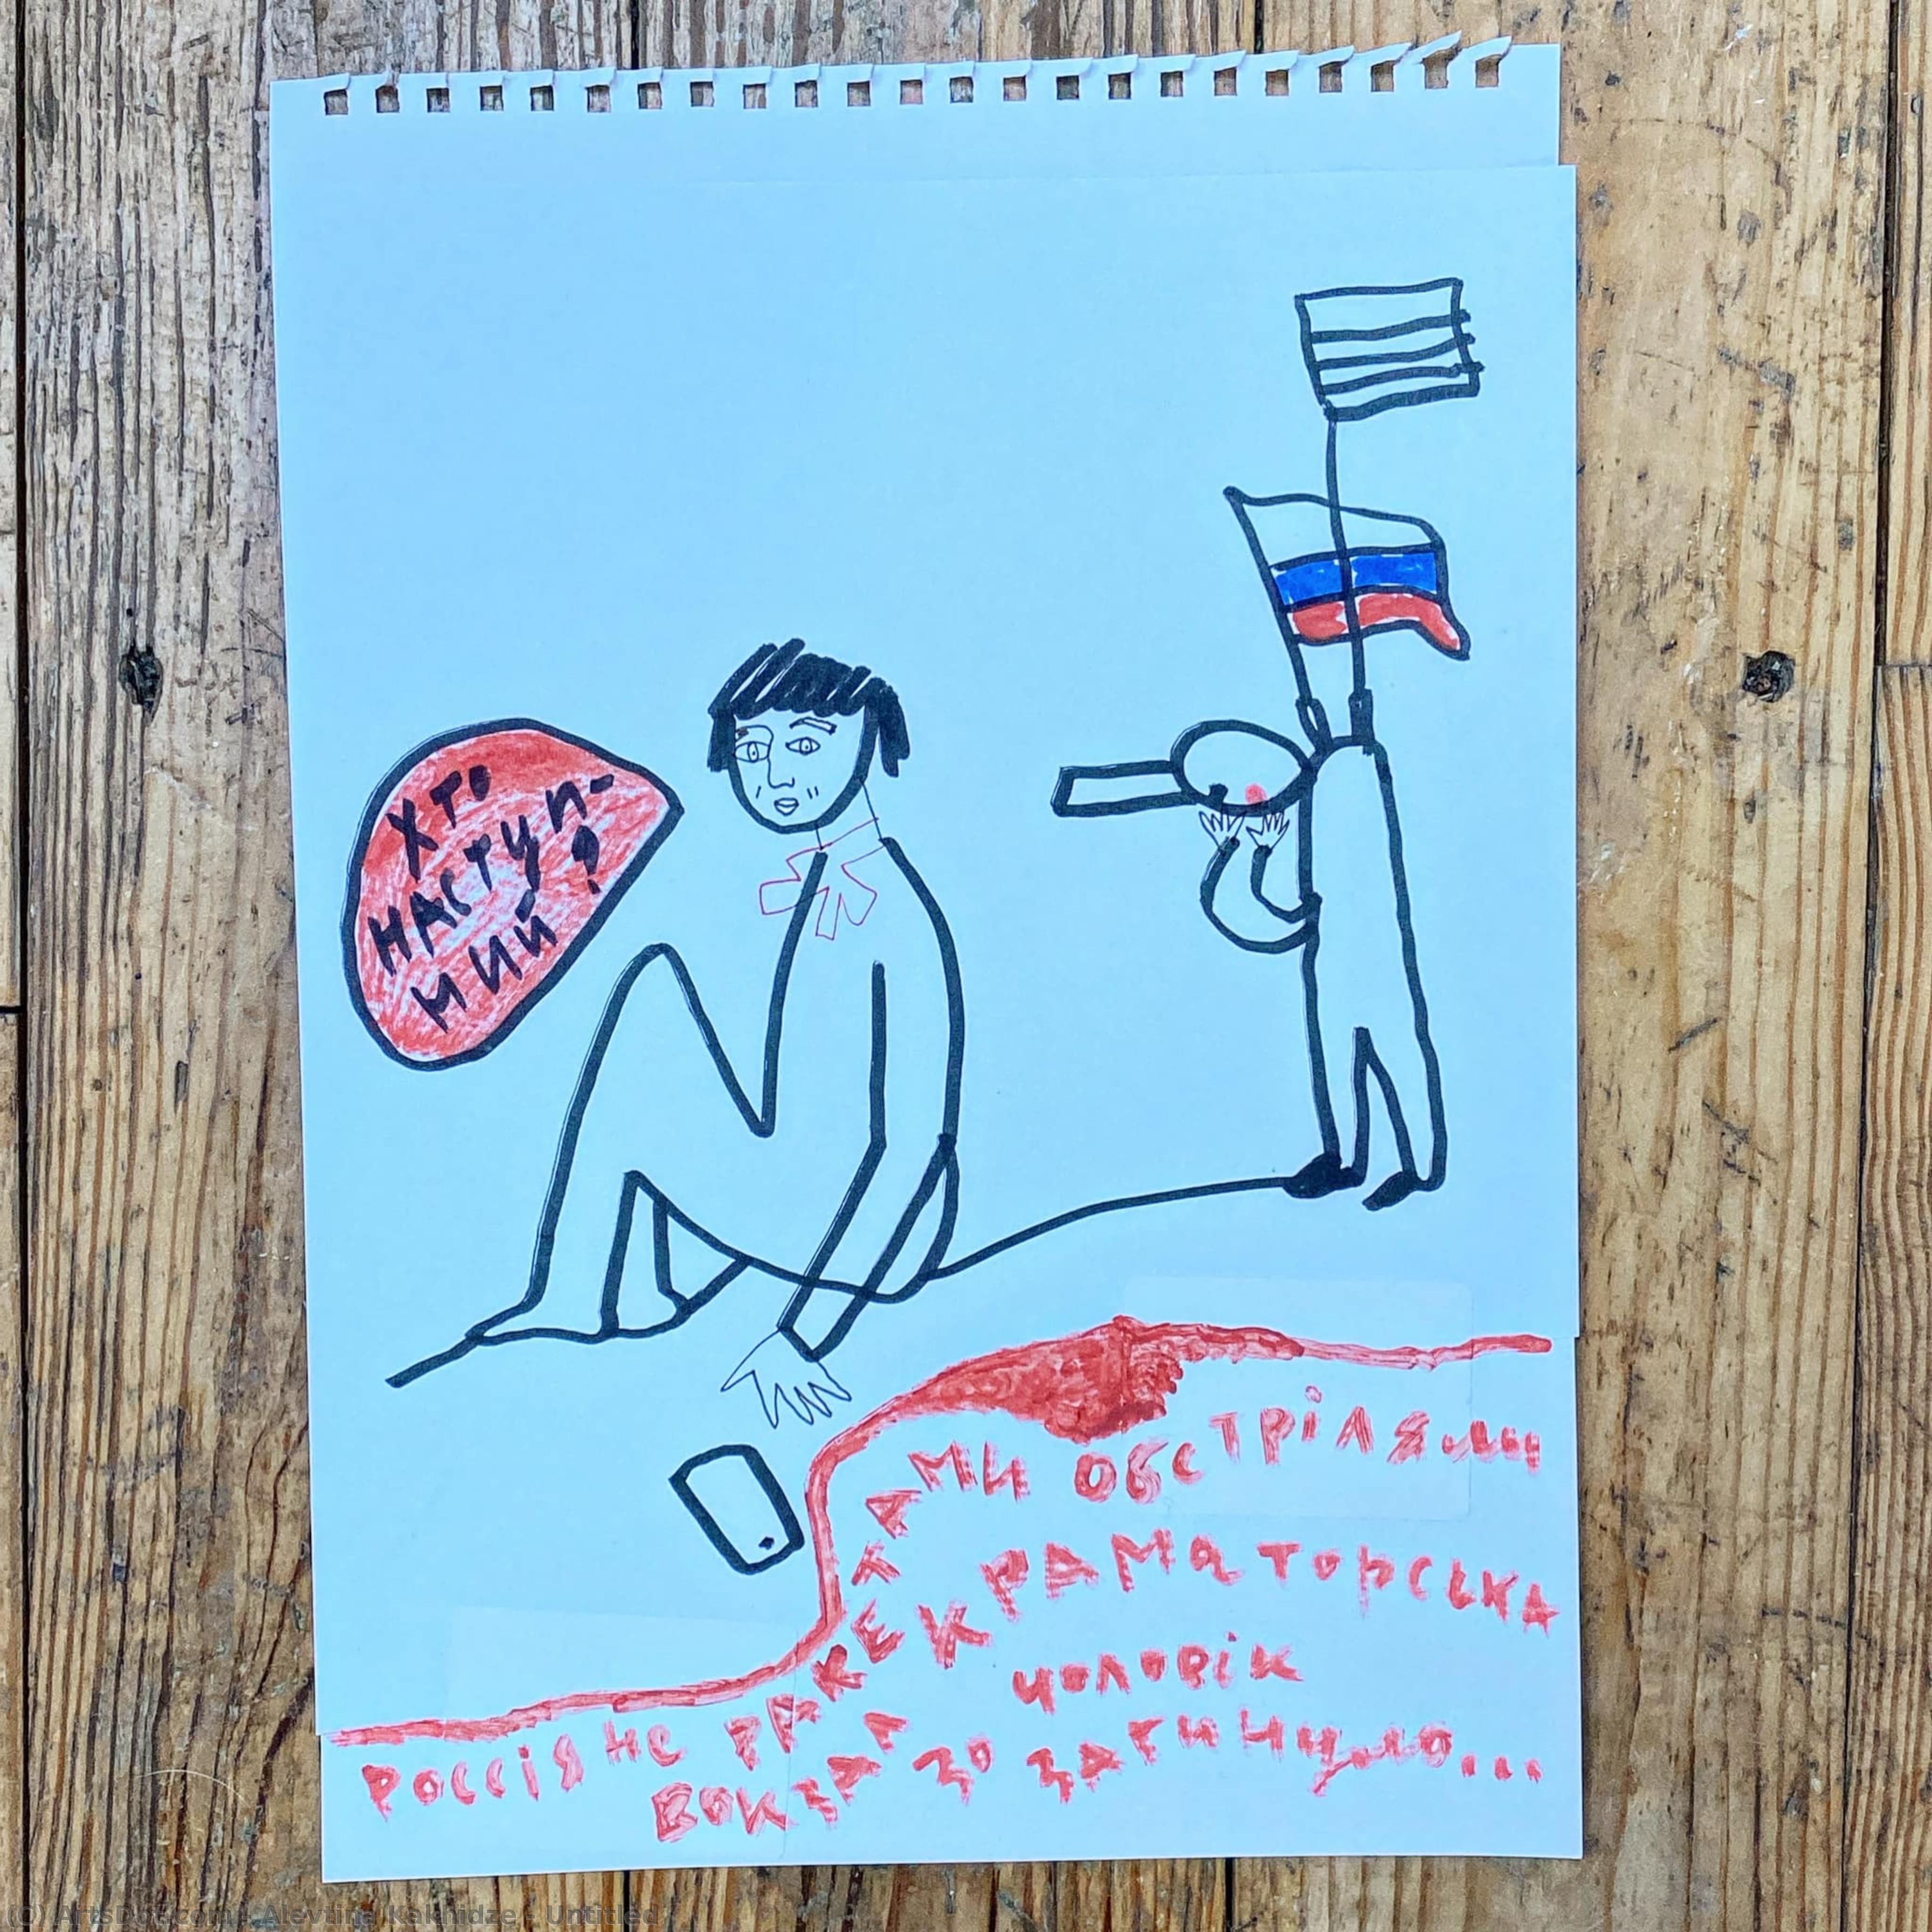 ХТО
НАСТУП-
НИЙ?
РОССІЯНЕ РАКЕТАМИ ОБСТРІЛЯЛИ
ВОКЗАЛ КРАМАТОРСЬКА
30 ЧОЛОВІК
ЗАГИНУЛО...
(C) ArtsDot.com - Alevtina Kakhidze - Untitled